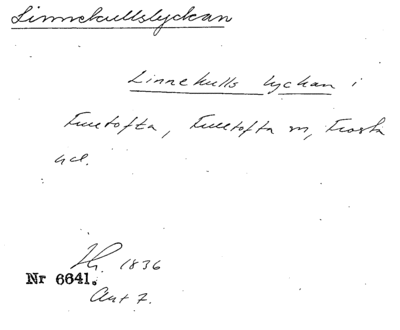 Linnekullslyckan
Linnekulls lyckan i
Fulltofta, Fulltofta sn, Frosta
hd.
1836
Nr 6641.
Akt 7.